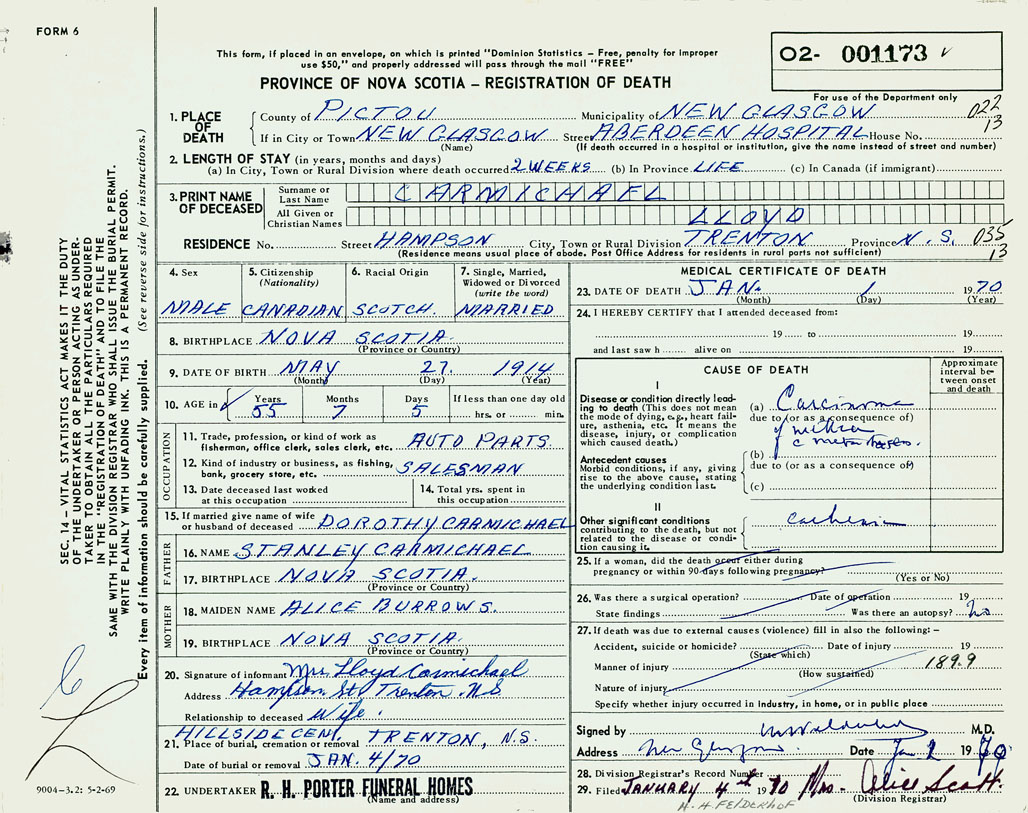 FORM 6
This form, if placed in an envelope, on which is printed "Dominion Statistics – Free, penalty for improper
use $50," and properly addressed will pass through the mail "FREE"
PROVINCE OF NOVA SCOTIA – REGISTRATION OF DEATH
O2- 001173
For use of the Department only
022
13
1. PLACE OF DEATH
County of PICTOU Municipality of NEW GLASGOW
If in City or Town NEW GLASGOW Street ABERDEEN HOSPITAL House No.
(Name) (If death occurred in a hospital or institution, give the name instead of street and number)
2. LENGTH OF STAY (in years, months and days)
(a) In City, Town or Rural Division where death occurred 2 WEEKS (b) In Province LIFE (c) In Canada (if immigrant)
3. PRINT NAME OF DECEASED
Surname or Last Name CARMICHAEL
All Given or Christian Names LLOYD
RESIDENCE No. Street HAMPSON City, Town or Rural Division TRENTON Province N.S.
035
13
(Residence means usual place of abode. Post Office Address for residents in rural parts not sufficient)
4. Sex
MALE
5. Citizenship
(Nationality)
CANADIAN
6. Racial Origin
SCOTCH.
7. Single, Married,
Widowed or Divorced
(write the word)
MARRIED
8. BIRTHPLACE NOVA SCOTIA.
(Province or Country)
9. DATE OF BIRTH MAY 27. 1914
(Month) (Day) (Year)
10. AGE in Years Months Days If less than one day old
55 7 5 hrs. or min.
OCCUPATION
11. Trade, profession, or kind of work as
fisherman, office clerk, sales clerk, etc. AUTO PARTS.
12. Kind of industry or business, as fishing,
bank, grocery store, etc. SALESMAN
13. Date deceased last worked
at this occupation
14. Total yrs. spent in
this occupation
15. If married give name of wife
or husband of deceased DOROTHY CARMICHAEL
FATHER
16. NAME STANLEY CARMICHAEL
17. BIRTHPLACE NOVA SCOTIA.
(Province or Country)
MOTHER
18. MAIDEN NAME ALICE BURROWS.
19. BIRTHPLACE NOVA SCOTIA.
(Province or Country)
20. Signature of informant Mrs Lloyd Carmichael
Address Hampson St. Trenton N.S
Relationship to deceased Wife.
HILLSIDE CEM. TRENTON, N.S.
21. Place of burial, cremation or removal
Date of burial or removal JAN. 4/70
22. UNDERTAKER R. H. PORTER FUNERAL HOMES
(Name and address)
MEDICAL CERTIFICATE OF DEATH
23. DATE OF DEATH JAN. 1 1970
(Month) (Day) (Year)
24. I HEREBY CERTIFY that I attended deceased from:
19 to 19
and last saw h alive on 19
CAUSE OF DEATH
Approximate
interval be-
tween onset
and death
I
Disease or condition directly lead-
ing to death (This does not mean
the mode of dying, e.g., heart fail-
ure, asthenia, etc. It means the
disease, injury, or complication
which caused death.)
(a) Carcinoma
due to (or as a consequence of)
of
Antecedent causes
Morbid conditions, if any, giving
rise to the above cause, stating
the underlying condition last.
(b)
due to (or as a consequence of)
(c)
II
Other significant conditions
contributing to the death, but not
related to the disease or condi-
tion causing it.
25. If a woman, did the death occur either during
pregnancy or within 90 days following pregnancy?
(Yes or No)
26. Was there a surgical operation? Date of operation 19
State findings Was there an autopsy? no
27. If death was due to external causes (violence) fill in also the following: –
Accident, suicide or homicide? Date of injury 19
(State which)
Manner of injury 189.9
(How sustained)
Nature of injury
Specify whether injury occurred in industry, in home, or in public place
Signed by M.D.
Address New Glasgow Date Jan 2 1970
28. Division Registrar's Record Number
29. Filed January 4th 1970 Mrs. Alice Scott
(Division Registrar)
SEC. 14 – VITAL STATISTICS ACT MAKES IT THE DUTY
OF THE UNDERTAKER OR PERSON ACTING AS UNDER-
TAKER TO OBTAIN ALL THE PARTICULARS REQUIRED
IN THE "REGISTRATION OF DEATH" AND TO FILE THE
SAME WITH THE DIVISION REGISTRAR WHO SHALL ISSUE THE BURIAL PERMIT.
WRITE PLAINLY WITH UNFADING INK. THIS IS A PERMANENT RECORD.
Every item of information should be carefully supplied. (See reverse side for instructions.)
9004-3.2: 5-2-69